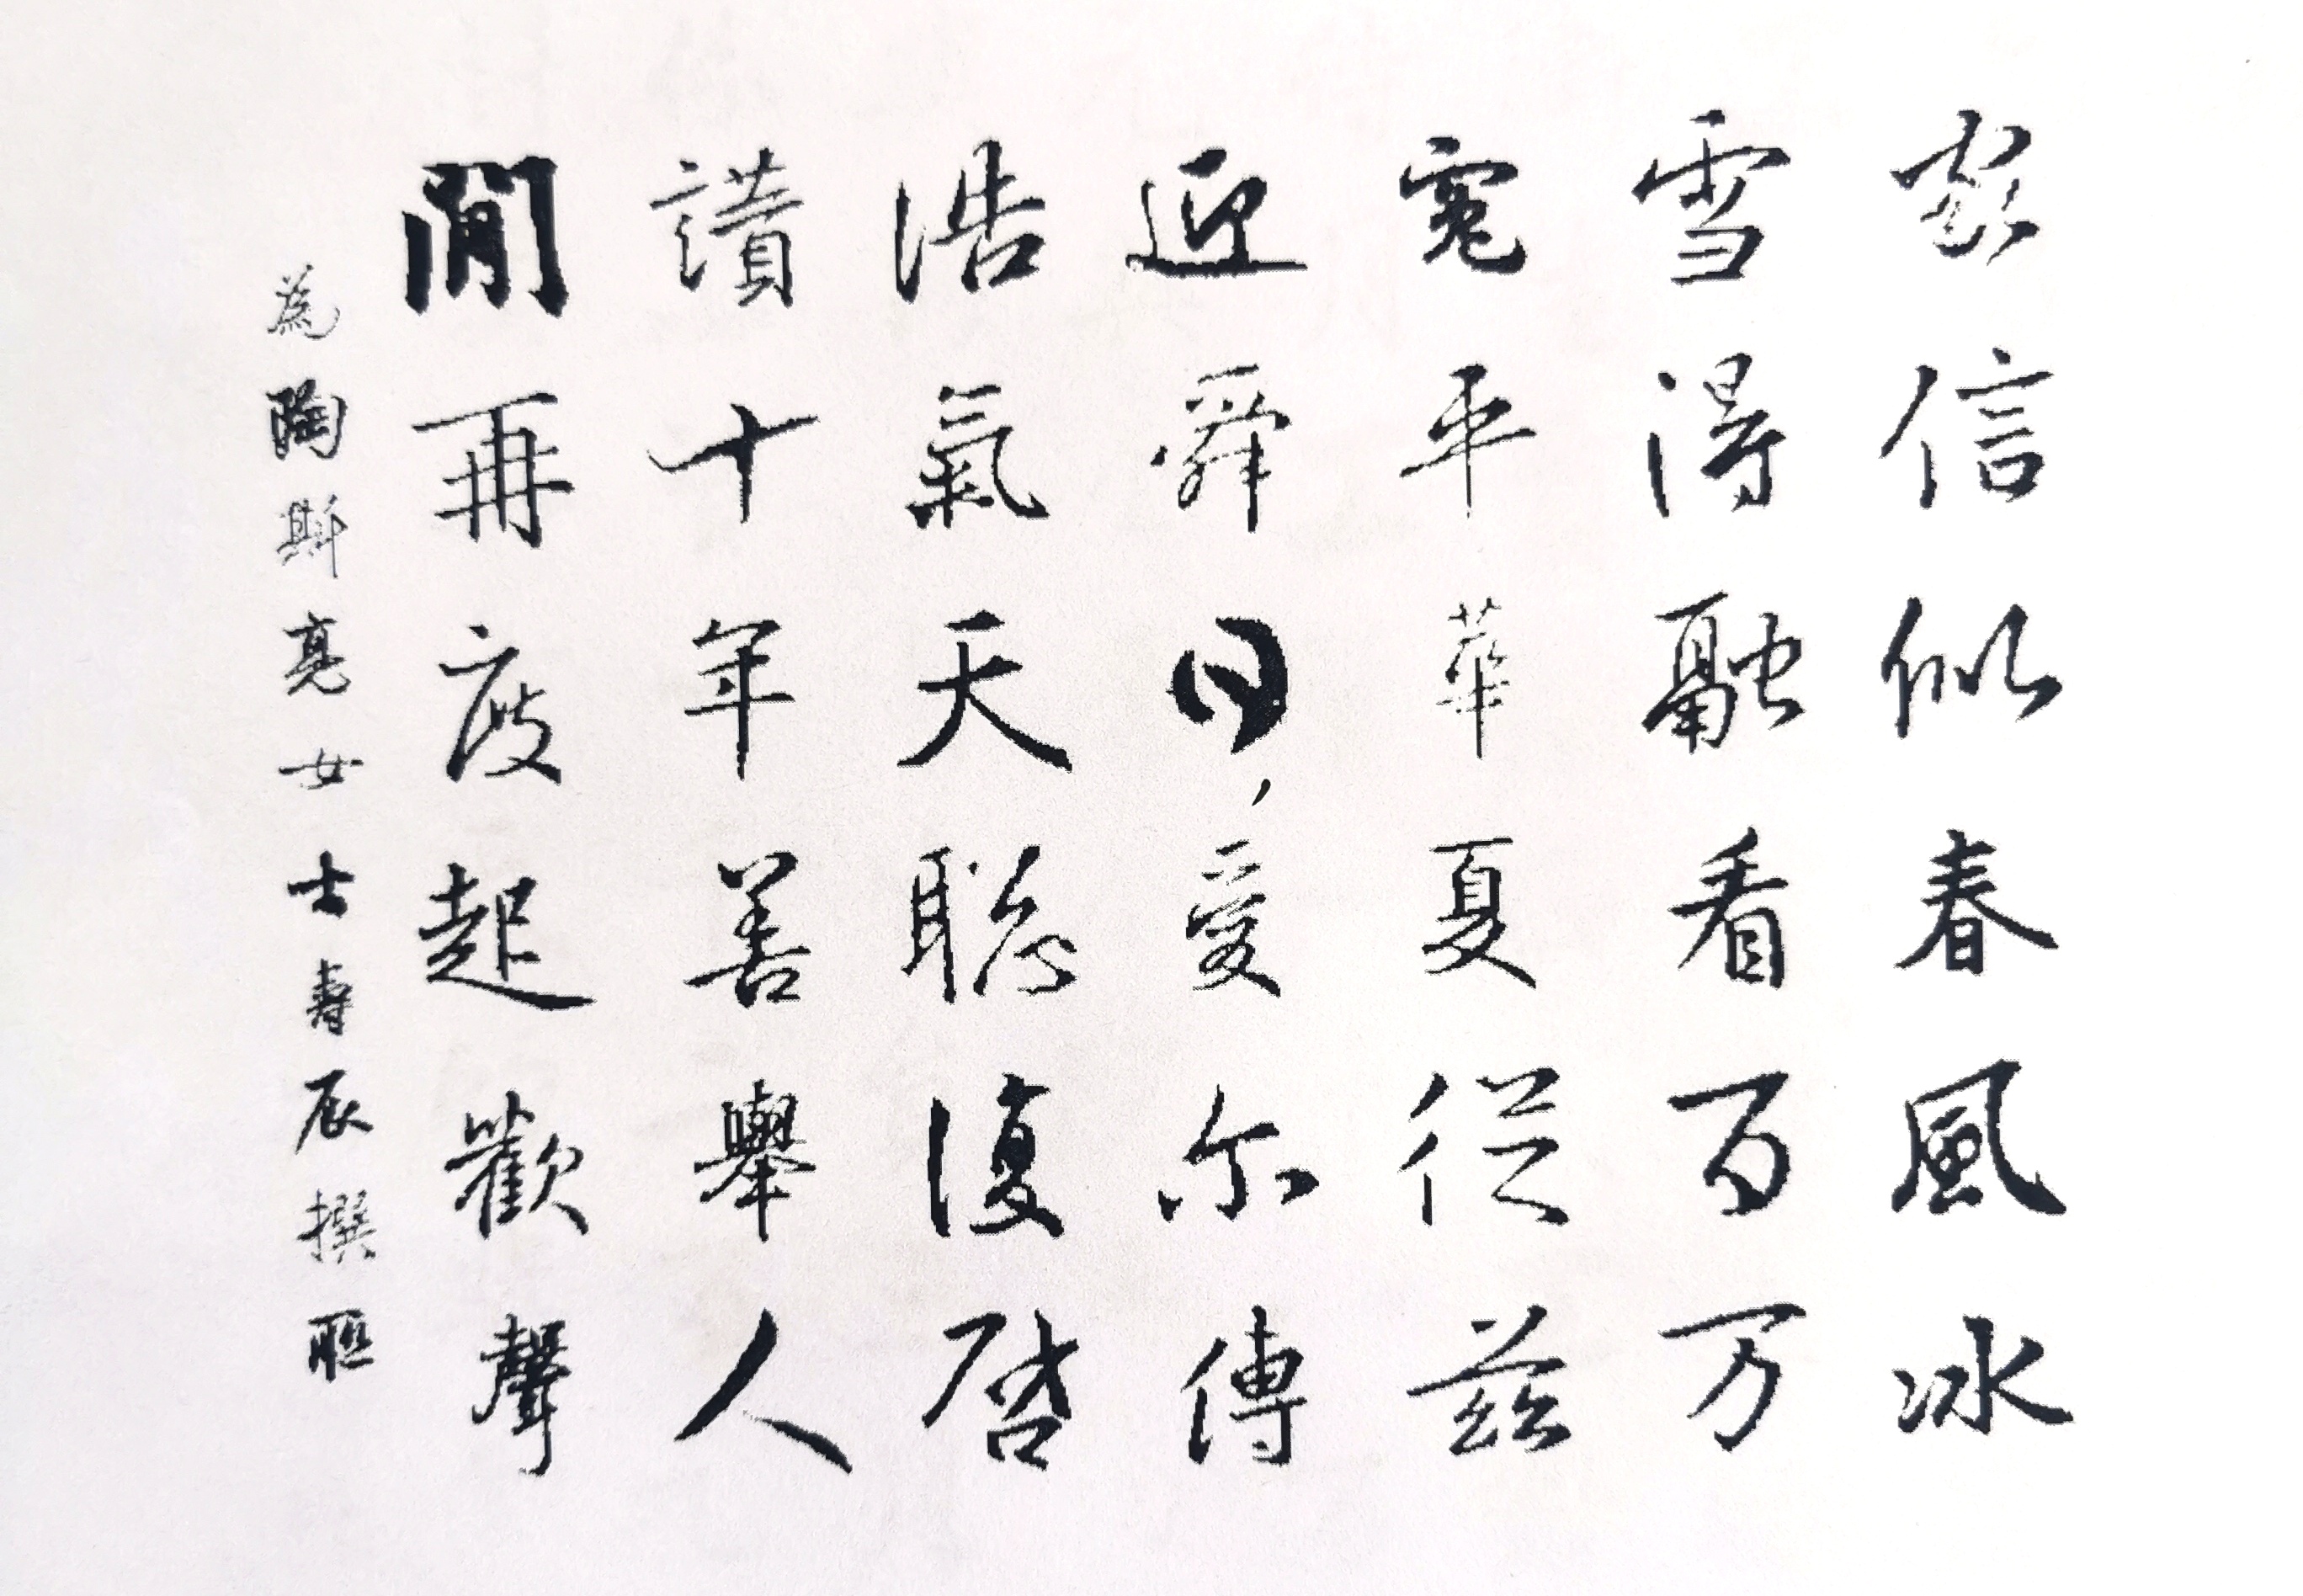 家信似春風冰
雪得融看百万
冤平華夏從茲
迎舜日,爱尔傳
浩氣天聪復啓
讃十年善舉人
間再度起歡聲
為陶斯亮女士壽辰撰聯